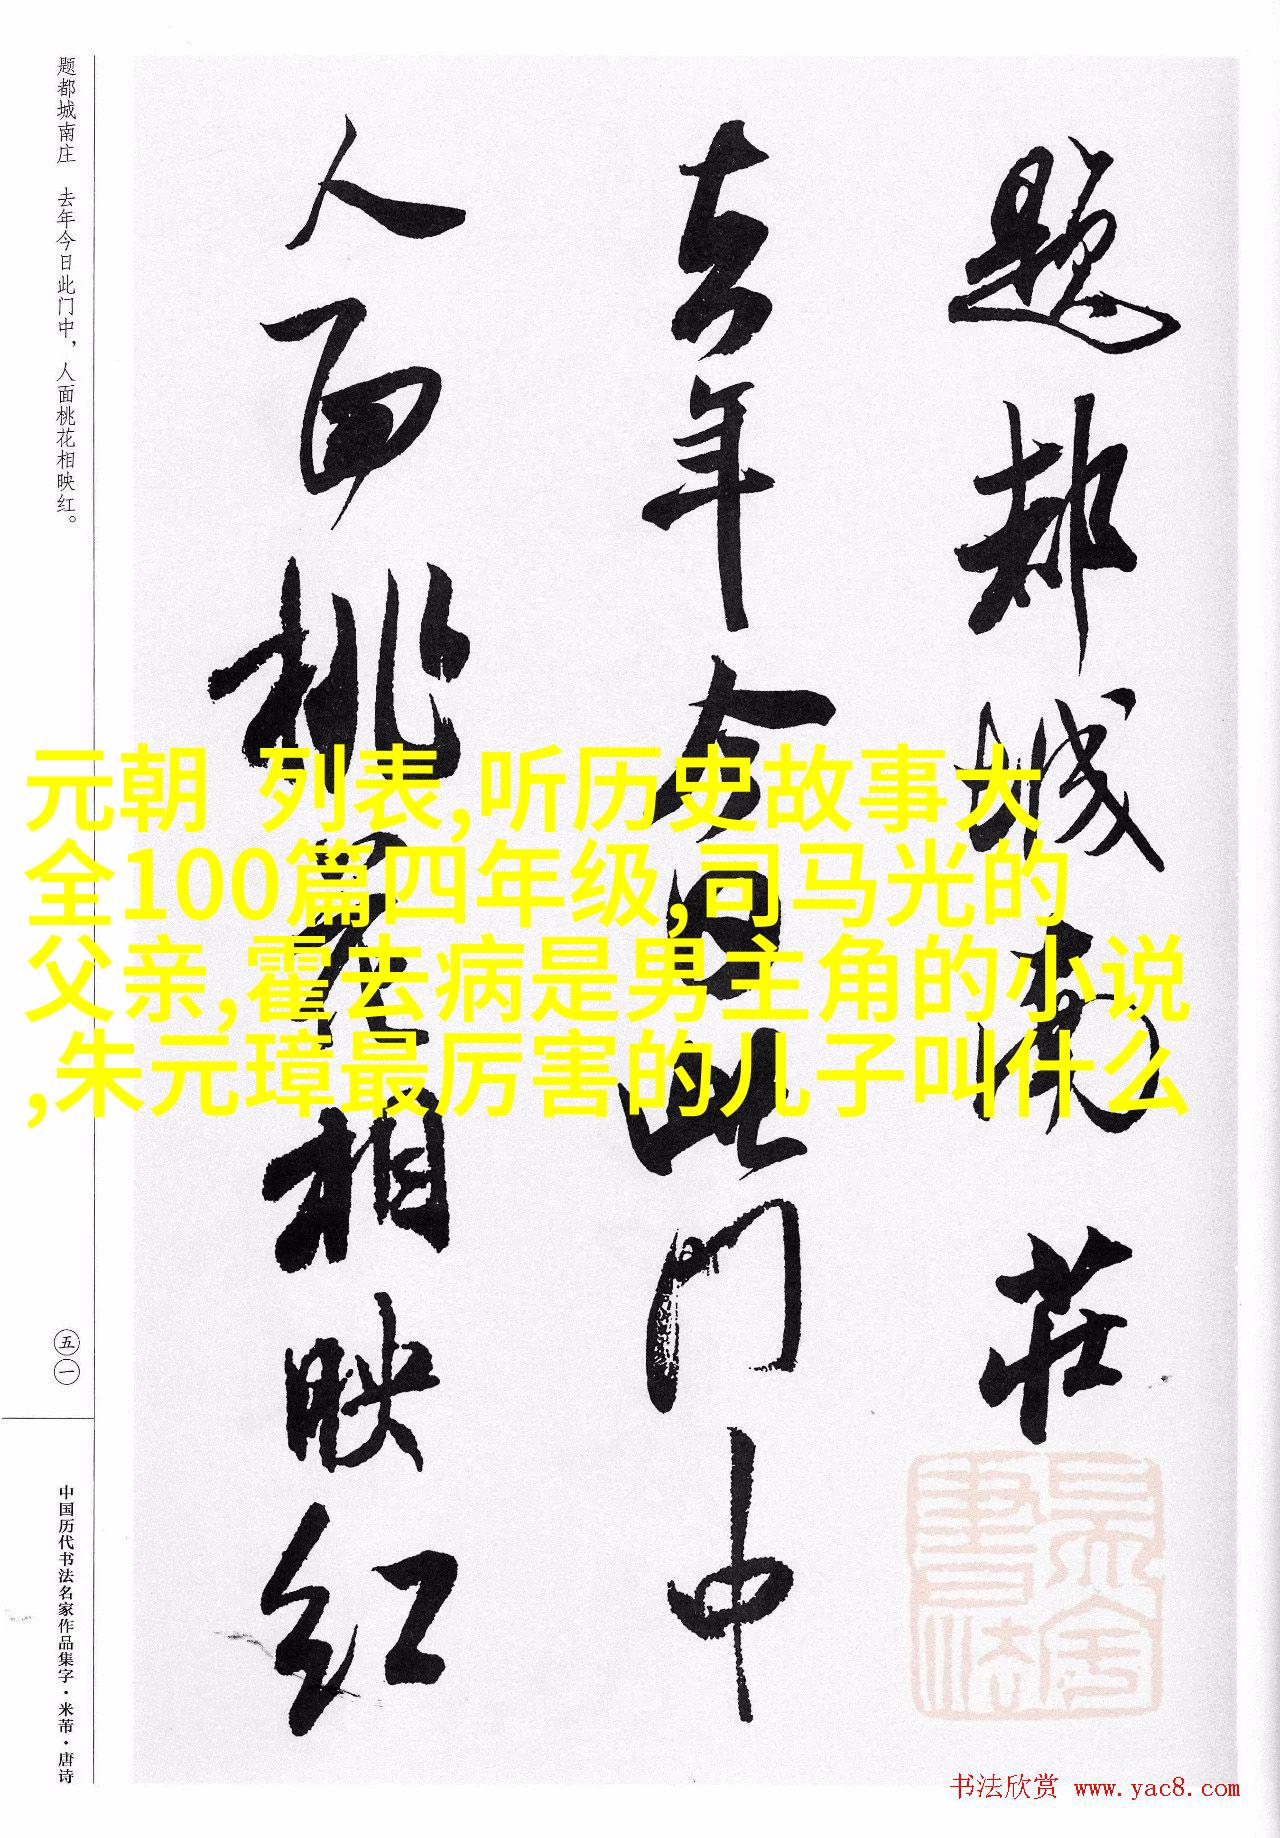 题都城南庄
去年今日此门中
人面桃花相映红
题都城南庄 去年今日此门中，人面桃花相映红。
五一
中国历代书法名家作品集字·米芾·唐诗
元朝 列表,听历史故事大
全100篇四年级,司马光的
父亲,霍去病是男主角的小说
,朱元璋最厉害的儿子叫什么
书法欣赏 www.yac8.com